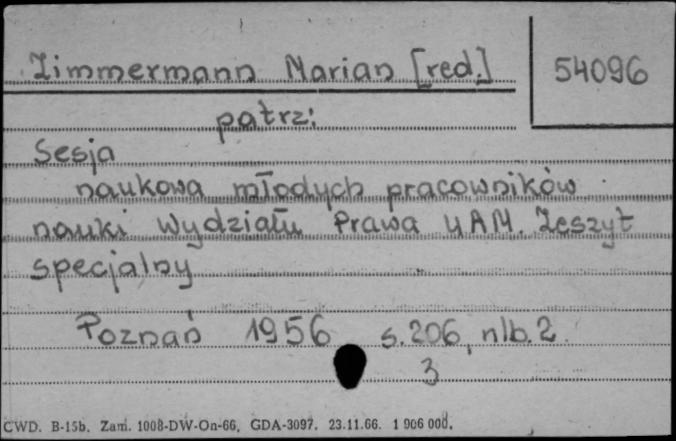 Zimmermann Marian [red.]
54096
patrz:
Sesja
naukowa młodych pracowników
nauki Wydziału Prawa UAM. Zeszyt
specjalny
Poznań 1956 s. 206, nlb. 2.
3
CWD. B-15b. Zam. 1008-DW-On-66. GDA-3097. 23.11.66. 1 906 000.